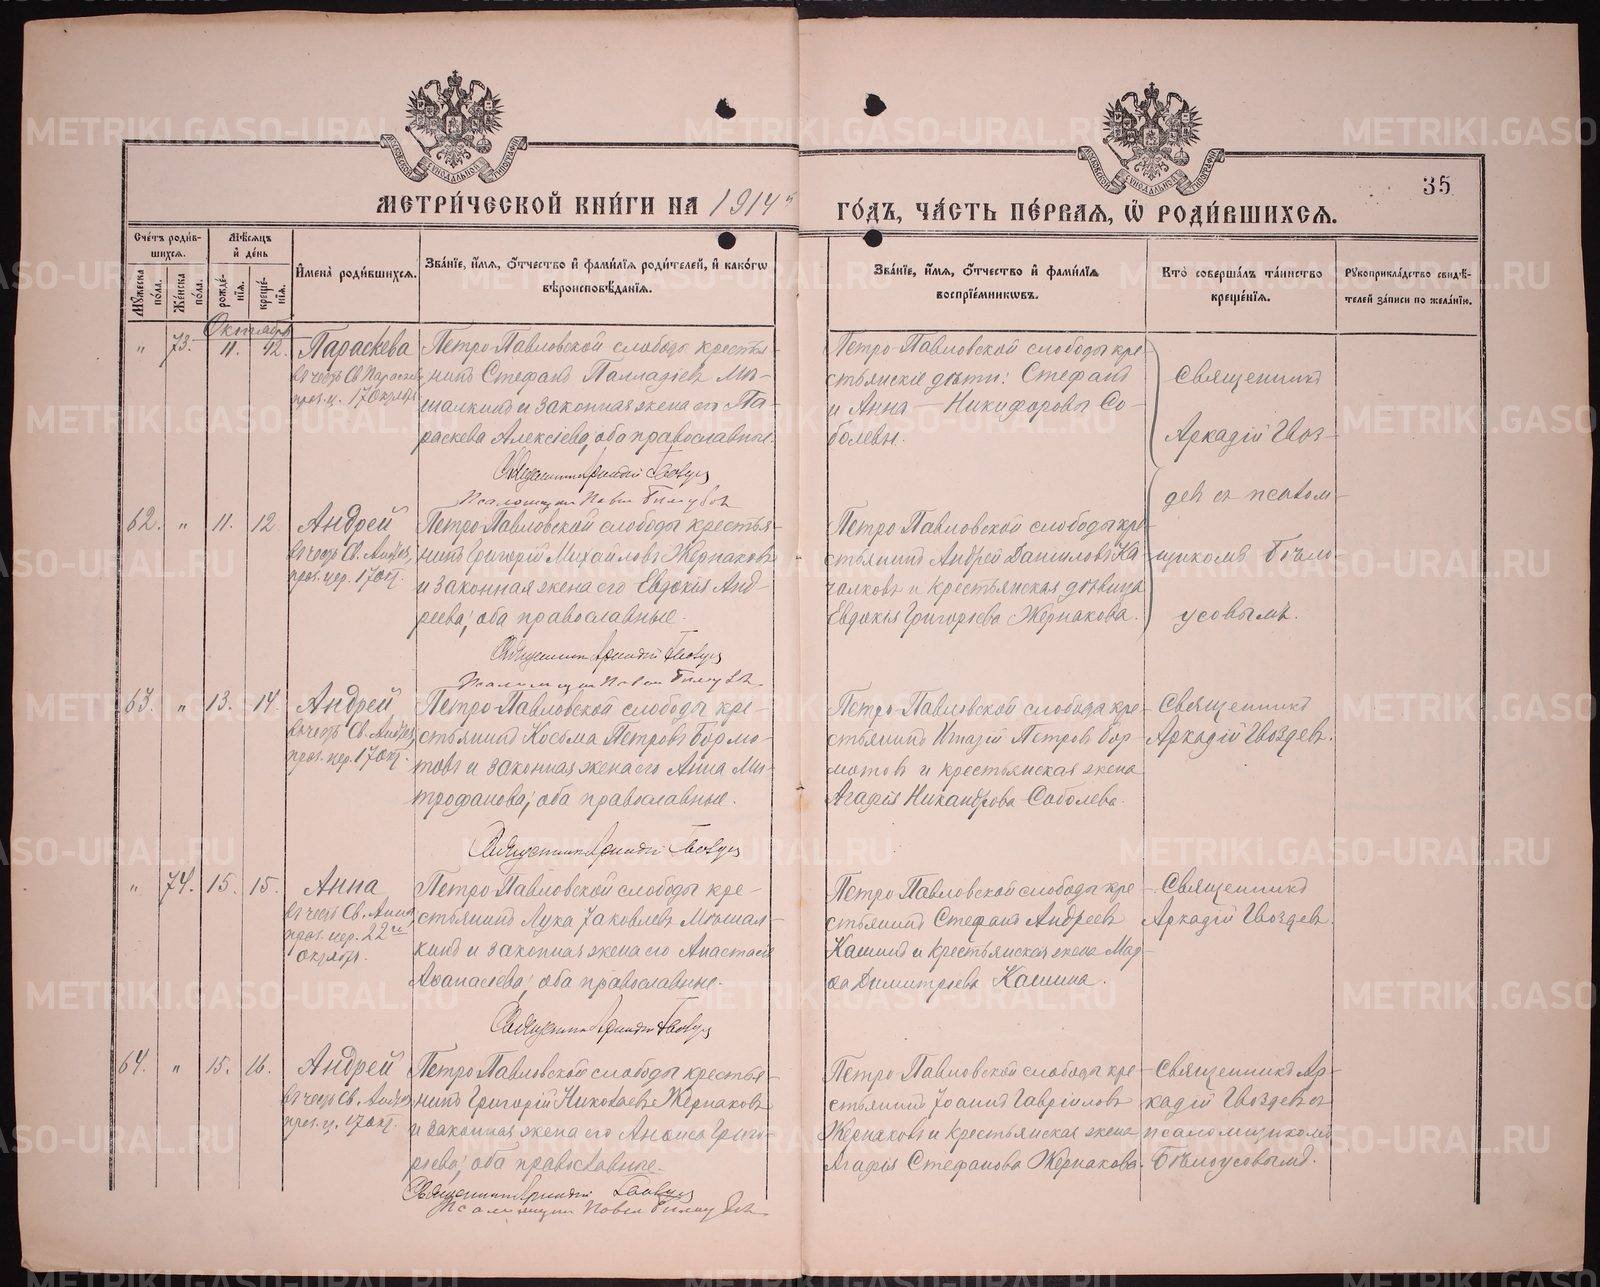 МЕТРИ́ЧЕСКОЙ КНИ́ГИ НА 1914й ГО́ДЪ, ЧА́СТЬ ПЕ́РВАЯ, Ѡ҆ РОДИ́ВШИХСЯ.
35
Сче́тъ роди́вшихся.
Мѣ́сяцъ и҆ де́нь
Мꙋ́жеска по́ла.
Же́нска по́ла.
рожде́нїя.
креще́нїя.
И҆мена̀ роди́вшихся.
Зва́нїе, и҆́мя, ѻ҆́тчество и҆ фами́лїя роди́телей, и҆ како́гѡ
вѣроисповѣ́данїя.
Зва́нїе, и҆́мя, ѻ҆́тчество и҆ фами́лїя
воспрїе́мникѡвъ.
Кто̀ соверша́лъ та́инство
креще́нїя.
Рꙋкоприкла́дство свидѣ́-
телей за́писи по жела́нїю.
Октябрь
" 73. 11. 12. Параскева
въ честь Св. Параскевы
праз. ц. 17 Октября
Петро-Павловской слободы крестья-
нинъ Стефанъ Палладіевъ Мы-
шалкинъ и законная жена его Па-
раскева Алексіева, оба православные.
Священникъ Аркадій Гвоздевъ
Псаломщикъ Павел Белоусов
Петро-Павловской слободы кре-
стьянскіе дѣти: Стефанъ
и Анна Никифоровы Со-
болевы.
Священникъ
Аркадій Гвоз-
девъ съ псалом-
щикомъ Бѣло-
усовымъ.
62. " 11. 12. Андрей
въ честь Св. Андрея,
праз. цер. 17 окт.
Петро-Павловской слободы крестья-
нинъ Григорій Михайловъ Жернаковъ
и законная жена его Евдокія Анд-
реева; оба православные.
Священникъ Аркадій Гвоздевъ
Псаломщикъ Павел Белоусов
Петро-Павловской слободы кре-
стьянинъ Андрей Даниловъ Ка-
чалковъ и крестьянская дѣвица
Евдокія Григорьева Жернакова.
63. " 13. 14. Андрей
въ честь Св. Андрея,
праз. цер. 17 окт.
Петро-Павловской слободы кре-
стьянинъ Косьма Петровъ Бормо-
товъ и законная жена его Анна Ми-
трофанова; оба православные.
Священникъ Аркадій Гвоздевъ
Петро-Павловской слободы кре-
стьянинъ Игнатій Петровъ Бор-
мотовъ и крестьянская жена
Агафія Никандрова Соболева.
Священникъ
Аркадій Гвоздевъ.
" 74. 15. 15. Анна
въ честь Св. Анны,
праз. цер. 22го
октября.
Петро-Павловской слободы кре-
стьянинъ Лука Іаковлевъ Мышал-
кинъ и законная жена его Анастасія
Аѳанасіева; оба православные.
Священникъ Аркадій Гвоздевъ
Петро-Павловской слободы кре-
стьянинъ Стефанъ Андреевъ
Кашинъ и крестьянская жена Мар-
ѳа Димитріева Кашина.
Священникъ
Аркадій Гвоздевъ.
64. " 15. 16. Андрей
въ честь Св. Андрея,
праз. ц. 17 окт.
Петро-Павловской слободы крестья-
нинъ Григорій Николаевъ Жернаковъ
и законная жена его Анѳиса Григо-
рьева; оба православные.
Священникъ Аркадій Гвоздевъ
Псаломщикъ Павел Белоусов
Петро-Павловской слободы кре-
стьянинъ Іоаннъ Гавріиловъ
Жернаковъ и крестьянская жена
Агафія Стефанова Жернакова.
Священникъ Ар-
кадій Гвоздевъ съ
псаломщикомъ
Бѣлоусовымъ.
METRIKI.GASO-URAL.RU